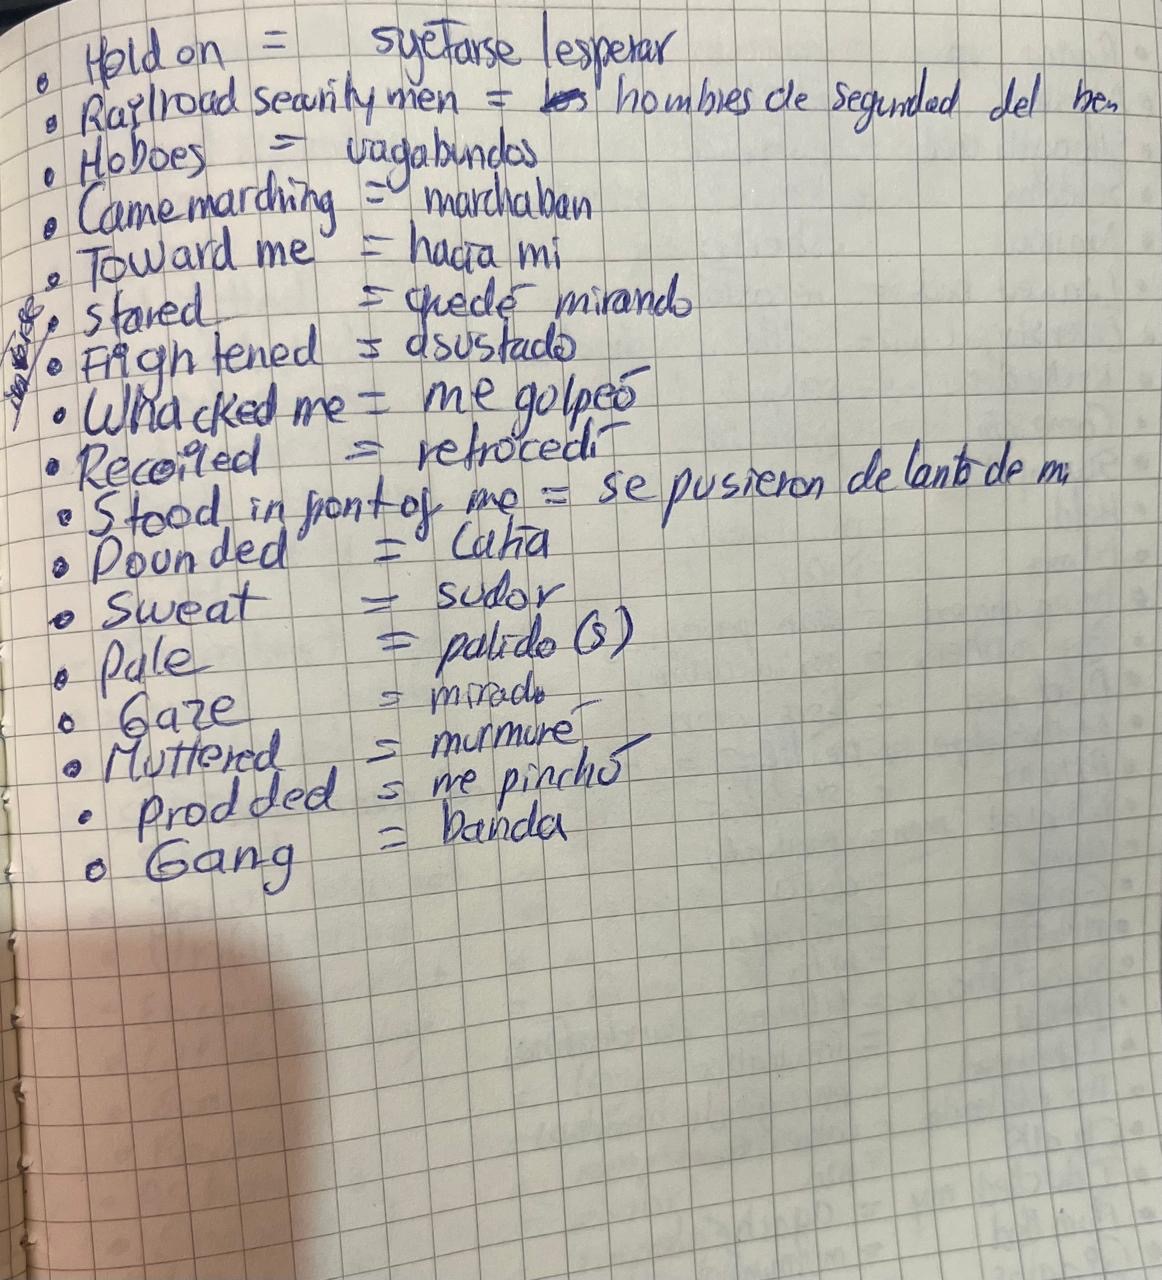 • Hold on = sujetarse / esperar
• Railroad security men = hombres de seguridad del tren
• Hoboes = vagabundos
• Came marching = marchaban
• Toward me = hacia mi
• stared = quedé mirando
• Frightened = asustado
• Whacked me = me golpeó
• Recoiled = retrocedí
• Stood in front of me = se pusieron delante de mi
• Pounded = Latía
• Sweat = sudor
• Pale = palido (s)
• Gaze = mirada
• Muttered = murmuré
• Prodded = me pinchó
• Gang = banda